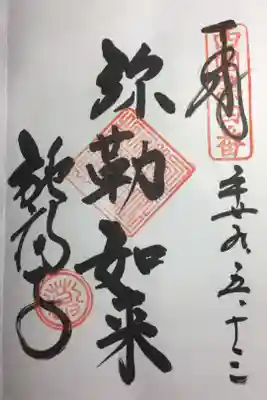 奉拝
平廿九、五、十二
弥勒如来
施福寺